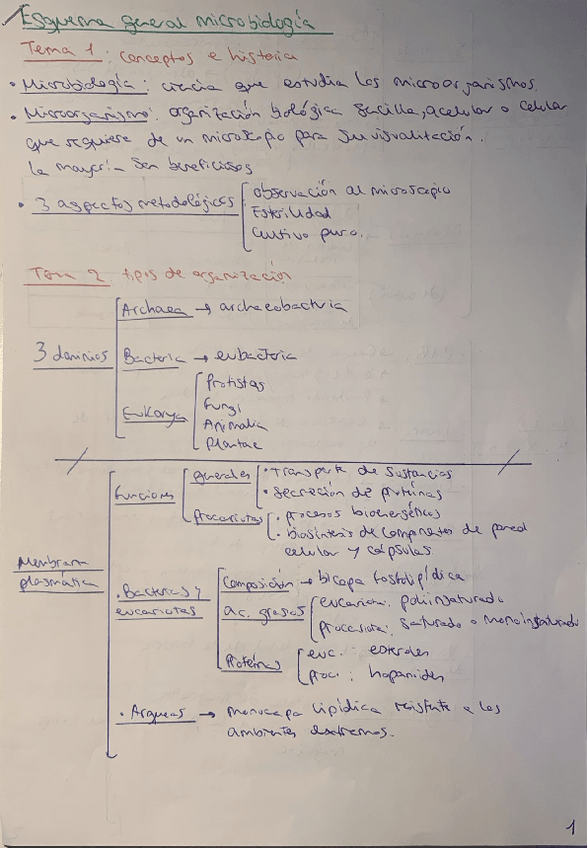 Esquema general microbiología
Tema 1: conceptos e historia
• Microbiología: ciencia que estudia los microorganismos.
• Microorganismo: organización biológica sencilla, acelular o celular
que requiere de un microscopio para su visualización.
la mayoría son beneficiosos
• 3 aspectos metodológicos
observación al microscopio
Esterilidad
Cultivo puro.
Tema 2 tipos de organización
3 dominios
Archaea → archaeobacteria
Bacteria → eubacteria
Eukarya
Protistas
Fungi
Animalia
Plantae
Membrana
plasmática
funciones
generales
• Transporte de sustancias
• secreción de proteínas
procariotas
• procesos bioenergéticos
• biosíntesis de componentes de pared
celular y cápsulas
• Bacterias y
eucariotas
Composición → bicapa fosfolipídica
ac. grasos
eucariota: poliinsaturado
procariota: saturado o monoinsaturado
Proteínas
euc. : esteroles
proc. : hopanoides
• Arqueas → monocapa lipídica resistente a los
ambientes extremos.
1